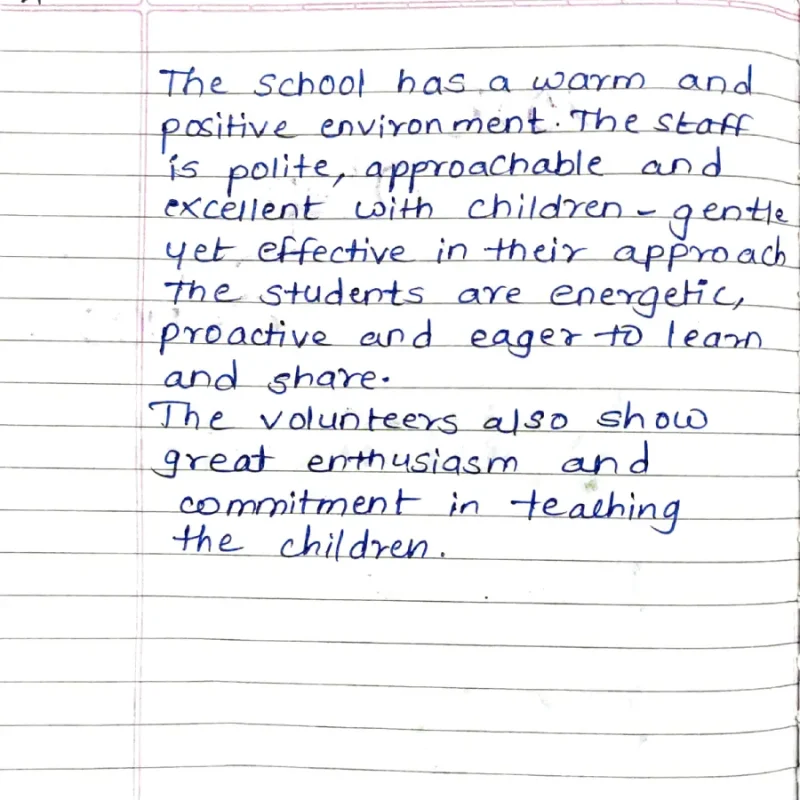 The school has a warm and
positive environment. The staff
is polite, approachable and
excellent with children - gentle
yet effective in their approach
The students are energetic,
proactive and eager to learn
and share.
The volunteers also show
great enthusiasm and
commitment in teaching
the children.